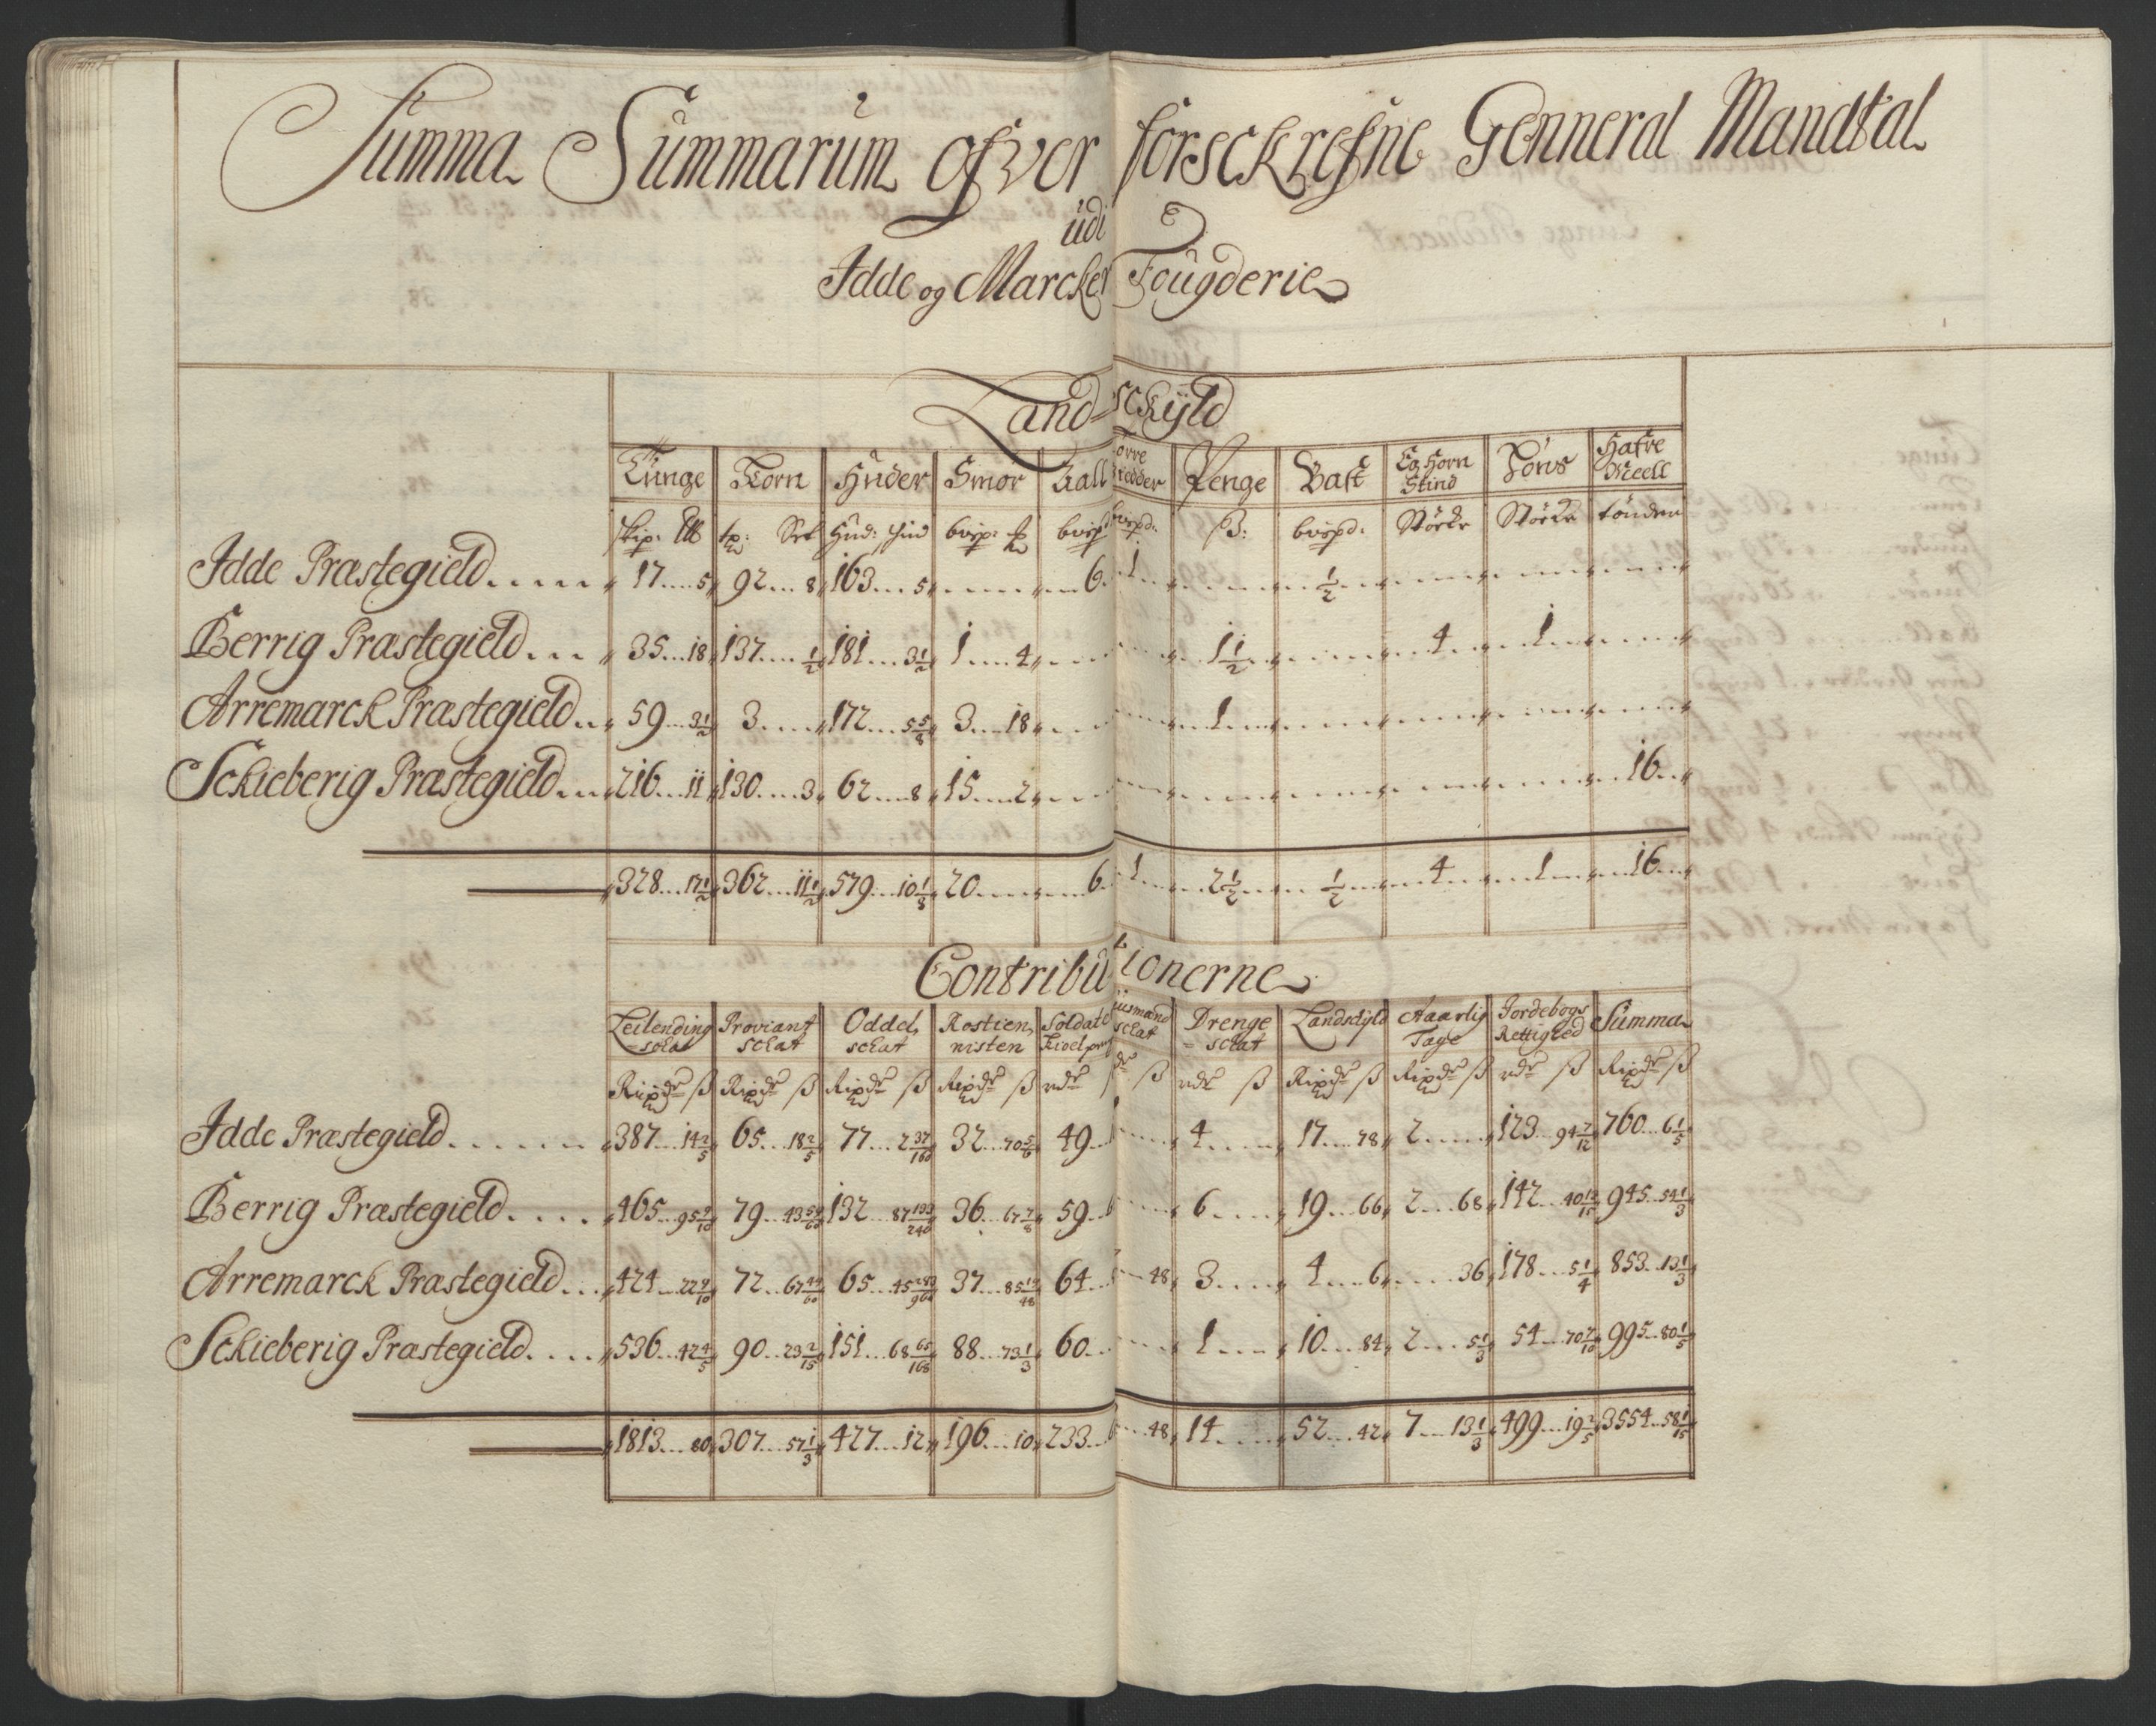 Summa Summarum ofver forsckrefne Genneral Mandtal
udi
Idde og Marcker Fougderie
Land-sckÿld
Tunge Korn Huder Smör Kall örre Giedder Penge Bast Eg Horn Stind Jóns Hafre Meell
Hud: bvspd: Störcke Störcke tönder
Idde Præstegield 17 5 92 8 163 5 6 1 1/2
Berrig Præstegield 35 18 137 1/2 181 3 1/2 1 4 1 1/2 4 1
Arremarck Præstegield 59 3 1/2 3 172 5 5/8 3 18 1
Sckieberig Præstegield 216 11 130 3 62 8 15 2 16
328 17 1/2 362 11 1/2 579 10 1/8 20 6 1 2 1/2 1/2 4 1 16
Contributionerne
Leilending sckat Proviant sckat Oddel sckat Rostien nisten Soldate uusmand sckat Drenge sckat Landsckÿld Aaarlig Tage Jordebogs Rettighed Summa
Idde Præstegield 387 14 2/5 65 18 2/5 77 2 37/160 32 70 5/6 49 4 17 78 2 123 94 7/12 760 6 1/5
Berrig Præstegield 465 95 9/10 79 43 59/60 132 87 193/240 36 67 7/8 59 6 19 66 2 68 142 40 13/15 945 54 1/3
Arremarck Præstegield 424 22 9/10 72 67 49/60 65 45 37 85 19/48 64 48 3 4 6 36 178 5 1/4 853 13 1/3
Sckieberig Præstegield 536 42 4/5 90 23 2/15 151 68 65/168 88 73 1/3 60 1 10 84 2 5 1/3 54 70 7/10 995 80 1/5
1813 80 307 57 1/3 427 12 196 10 233 48 14 52 42 7 13 1/3 499 19 2/5 3554 58 1/15